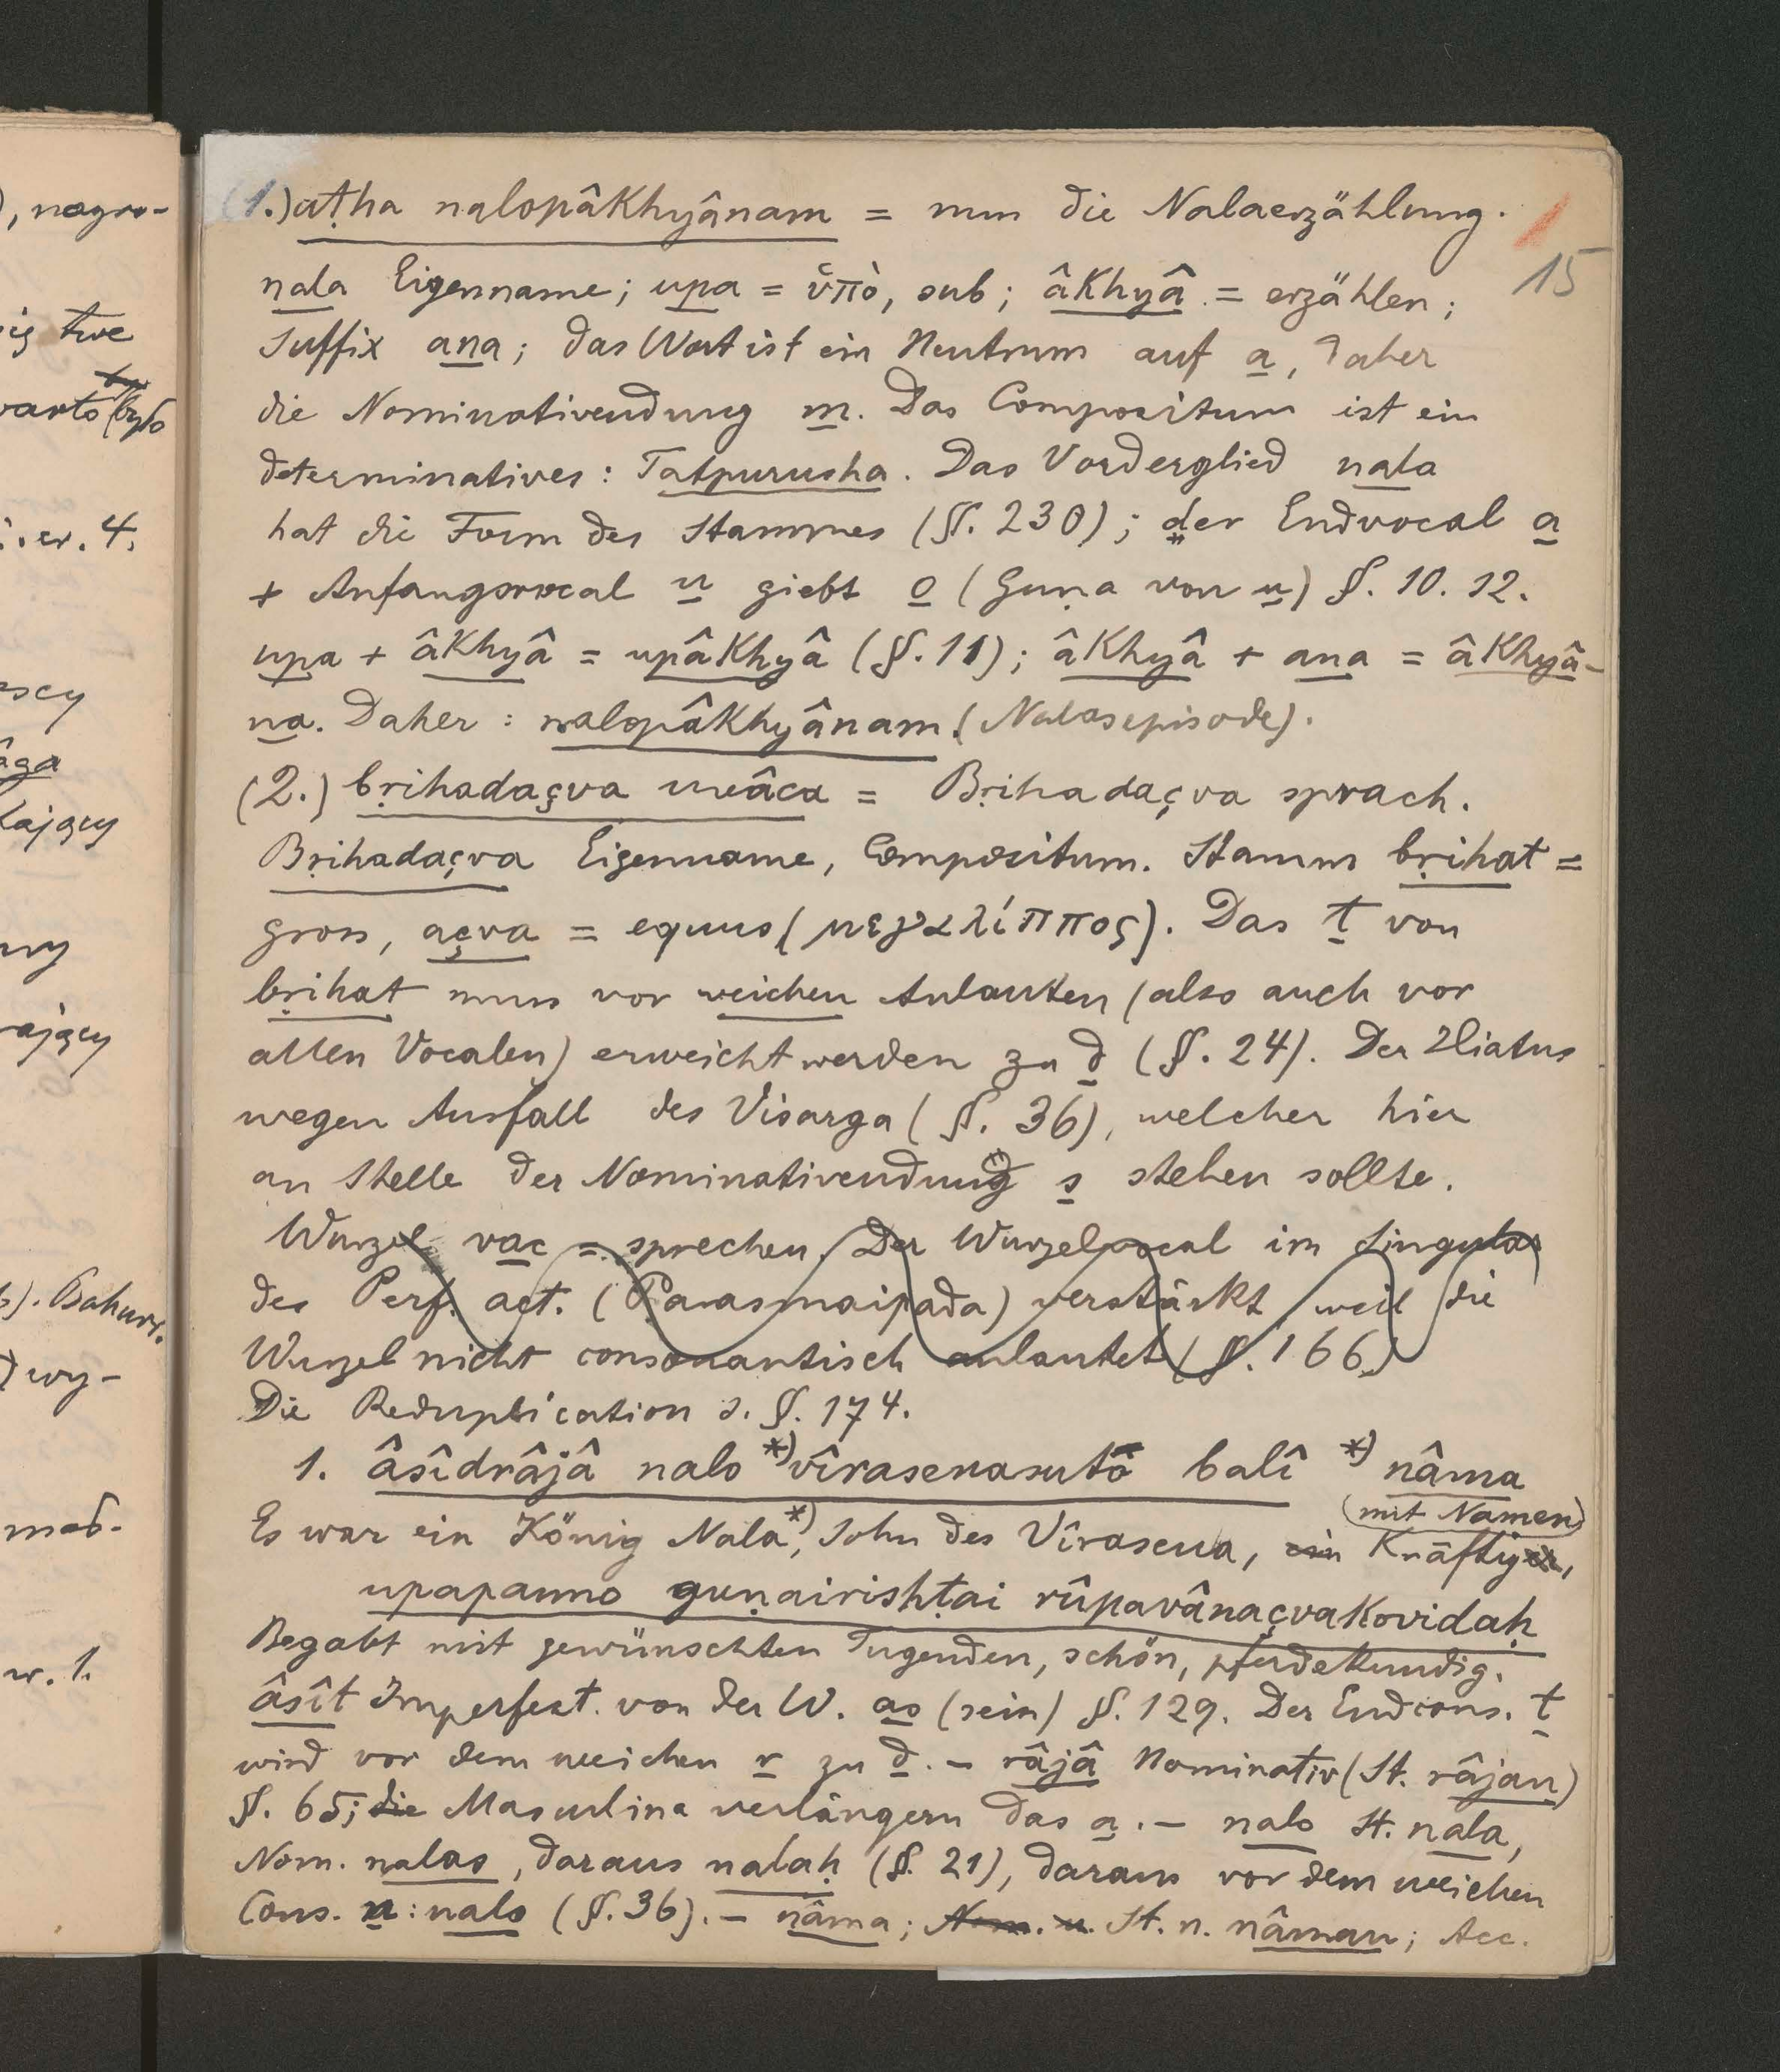 ), nagro-
ig twe
warto było
i. er. 4.
âga
kający
rający
b). Bahuvr.
wy-
w. 1.
15
(1.) aṭha nalopâkhyânam = nun die Nalaerzählung.
nala Eigenname; upa = ὑπὸ, sub; âkhyâ = erzählen;
Suffix ana; das Wort ist ein Neutrum auf a, daher
die Nominativendung m. Das Compositum ist ein
determinatives: Tatpurusha. Das Vorderglied nala
hat die Form des Stammes (§. 230); der Endvocal a
+ Anfangsvocal u giebt o (Guṇa von u) §. 10. 12.
upa + âkhyâ = upâkhyâ (§. 11); âkhyâ + ana = âkhyâ-
na. Daher: nalopâkhyânam. (Nalasepisode).
(2.) bṛihadaçva uvâca = Bṛihadaçva sprach.
Bṛihadaçva Eigenname, Compositum. Stamm bṛihat =
gross, açva = equus (μεγαλίππος). Das t von
bṛihat muss vor weichen Anlauten (also auch vor
allen Vocalen) erweicht werden zu d (§. 24). Der Hiatus
wegen Ausfall des Visarga (§. 36), welcher hier
an Stelle der Nominativendung s stehen sollte.
Wurzel vac = sprechen. Der Wurzelvocal im Singular
des Perf. act. (Parasmaipada) verstärkt, weil die
Wurzel nicht consonantisch anlautet (§. 166.)
Die Reduplication s. §. 174.
1. âsîdrâjâ nalo *) vîrasenasuto balî *) nâma
(mit Namen)
Es war ein König Nala *), Sohn des Vîrasena, ein Kräftiger,
upapanno guṇairishṭai rûpavânaçvakovidaḥ
Begabt mit gewünschten Tugenden, schön, pferdekundig.
âsît Imperfect. von der W. as (sein) §. 129. Der Endcons. t
wird vor dem weichen r zu d. – râjâ Nominativ (St. râjan)
§. 65; die Masculina verlängern das a. – nalo St. nala,
Nom. nalas, daraus nalaḥ (§. 21), daraus vor dem weichen
Cons. n: nalo (§. 36). – nâma; Nom. u. St. n. nâman; Acc.